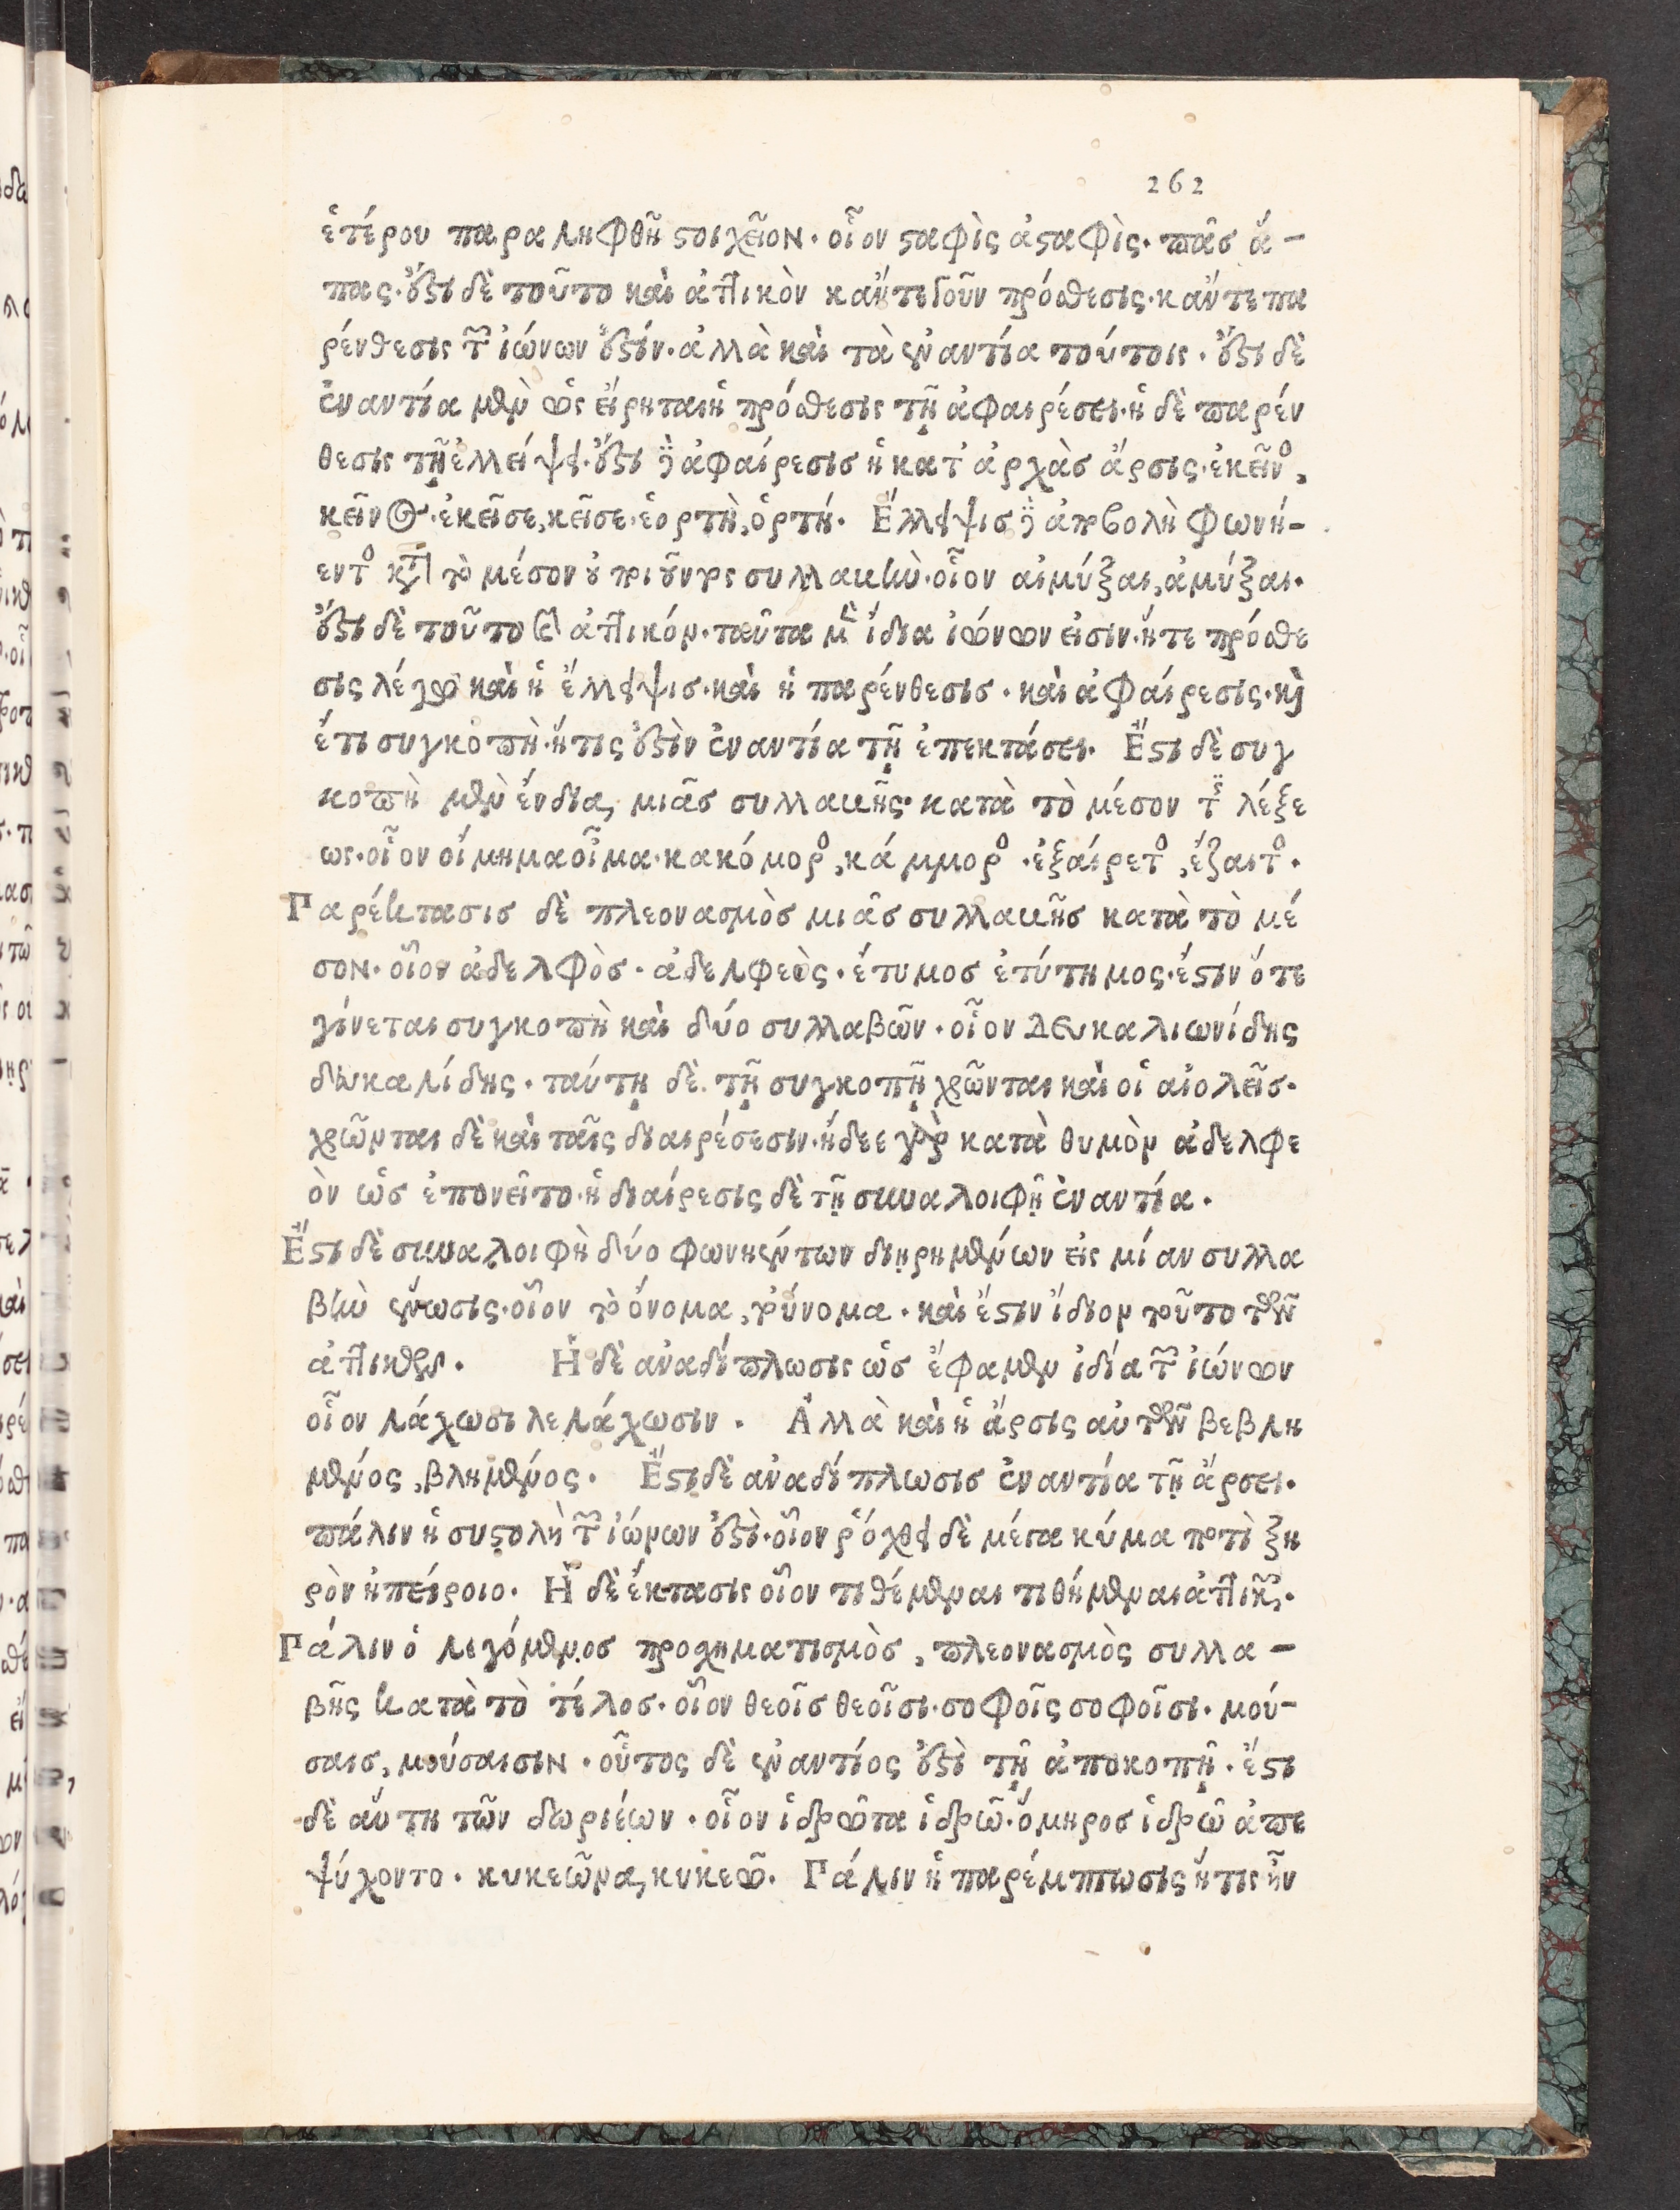 262
ἑτέρου παραληφθῆ στοιχεῖον. οἷον σταφὶς ἀσταφὶς. πᾶσ ἅ-
πας. ἔστι δὲ τοῦτο καὶ ἀττικὸν κἄντε γοῦν πρόσθεσις. κἄντε πα
ρένθεσις τῶν ἰώνων ἐστίν. ἀλλὰ καὶ τὰ ἐναντία τούτοις. ἔστι δὲ
ἐναντία μὲν ὡς εἴρηται ἡ πρόσθεσις τῇ ἀφαιρέσει. ἡ δὲ παρέν
θεσις τῇ ἐλλείψει. ἔστι γὰρ ἀφαίρεσισ ἡ κατ ἀρχὰσ ἄρσις. ἐκεῖνος,
κεῖνος. ἐκεῖσε, κεῖσε. ἑορτὴ, ὁρτή. Ἔλλειψισ γὰρ ἀποβολὴ φωνή-
εντος κατὰ τὸ μέσον οὐ ποιοῦντος συλλαβὴν. οἷον αἰμύξαι, ἀμύξαι.
ἔστι δὲ τοῦτο καὶ ἀττικόν. ταῦτα μὲν ἴδια ἰώνων εἰσιν. ἥτε πρόσθε
σις λέγω καὶ ἡ ἔλλειψισ. καὶ ἡ παρένθεσισ. καὶ ἀφαίρεσις. καὶ
ἔτι συγκοπὴ. ἥτις ἐστὶν ἐναντία τῇ ἐπεκτάσει. Ἔστι δὲ συγ
κοπὴ μὲν ἔνδια, μιᾶσ συλλαβῆς. κατὰ τὸ μέσον τῆς λέξε
ως. οἷον οἴμημα οἶμα. κακόμορος, κάμμορος. ἐξαίρετος, ἔξαιτος.
Παρέκτασισ δὲ πλεονασμὸσ μιᾶσ συλλαβῆσ κατὰ τὸ μέ
σον. οἷον ἀδελφὸσ. ἀδελφεὸς. ἔτυμοσ ἐτύτημος. ἔστιν ὅτε
γίνεται συγκοπὴ καὶ δύο συλλαβῶν. οἷον Δευκαλιωνίδης
δευκαλίδης. ταύτῃ δὲ τῇ συγκοπῇ χρῶνται καὶ οἱ αἰολεῖσ.
χρῶνται δὲ καὶ ταῖς διαιρέσεσιν. ἤδεε γὰρ κατὰ θυμὸν ἀδελφε
ὸν ὡσ ἐπονεῖτο. ἡ διαίρεσις δὲ τῇ συναλοιφῇ ἐναντία.
Ἔστι δὲ συναλοιφὴ δύο φωνηέντων διῃρημένων εἰς μίαν συλλα
βὴν ἕνωσις. οἷον τὸ ὄνομα, τοὔνομα. καὶ ἔστιν ἴδιον τοῦτο τῶν
ἀττικῶν. Ἡ δὲ ἀναδίπλωσις ὡσ ἔφαμεν ἰδία τῶν ἰώνων
οἷον λάχωσι λελάχωσιν. Ἀλλὰ καὶ ἡ ἄρσις αὐτῶν βεβλη
μένος, βλημένος. Ἔστι δὲ ἀναδίπλωσισ ἐναντία τῇ ἄρσει.
πάλιν ἡ συστολὴ τῶν ἰώνων ἐστὶ. οἷον ῥόχθει δὲ μέγα κύμα ποτὶ ξη
ρὸν ἠπείροιο. Ἡ δὲ ἔκτασις οἷον τιθέμεναι τιθήμεναι ἀττικῶς.
Πάλιν ὁ λεγόμενοσ προσχηματισμὸσ, πλεονασμὸς συλλα-
βῆς κατὰ τὸ τέλοσ. οἷον θεοῖσ θεοῖσι. σοφοῖς σοφοῖσι. μού-
σαισ, μούσαισιν. οὗτος δὲ ἐναντίος ἐστὶ τῇ ἀποκοπῇ. ἔστι
δὲ αὕτη τῶν δωριέων. οἷον ἱδρῶτα ἱδρῶ. ὅμηροσ ἱδρῶ ἀπε
ψύχοντο. κυκεῶνα, κυκεῶ. Πάλιν ἡ παρέμπτωσις ἥτις ἦν